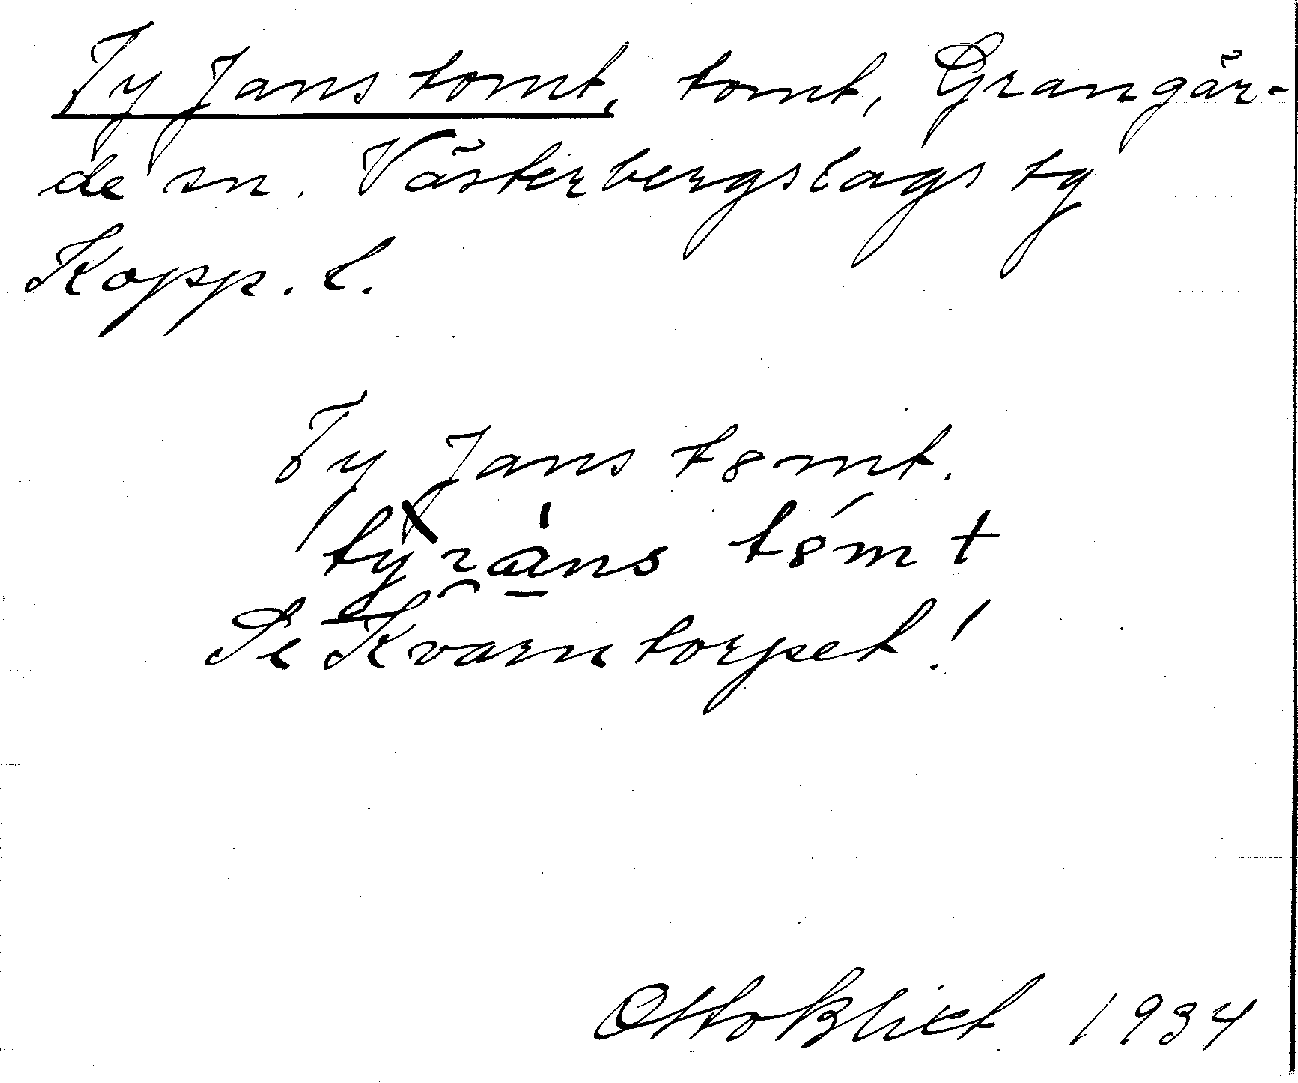 Ty Jans tomt, tomt, Grangär-
de sn. Västerbergslags tg
Kopp. l.
Ty Jans tomt.
Se Kvarntorpet!
Otto Blixt 1934